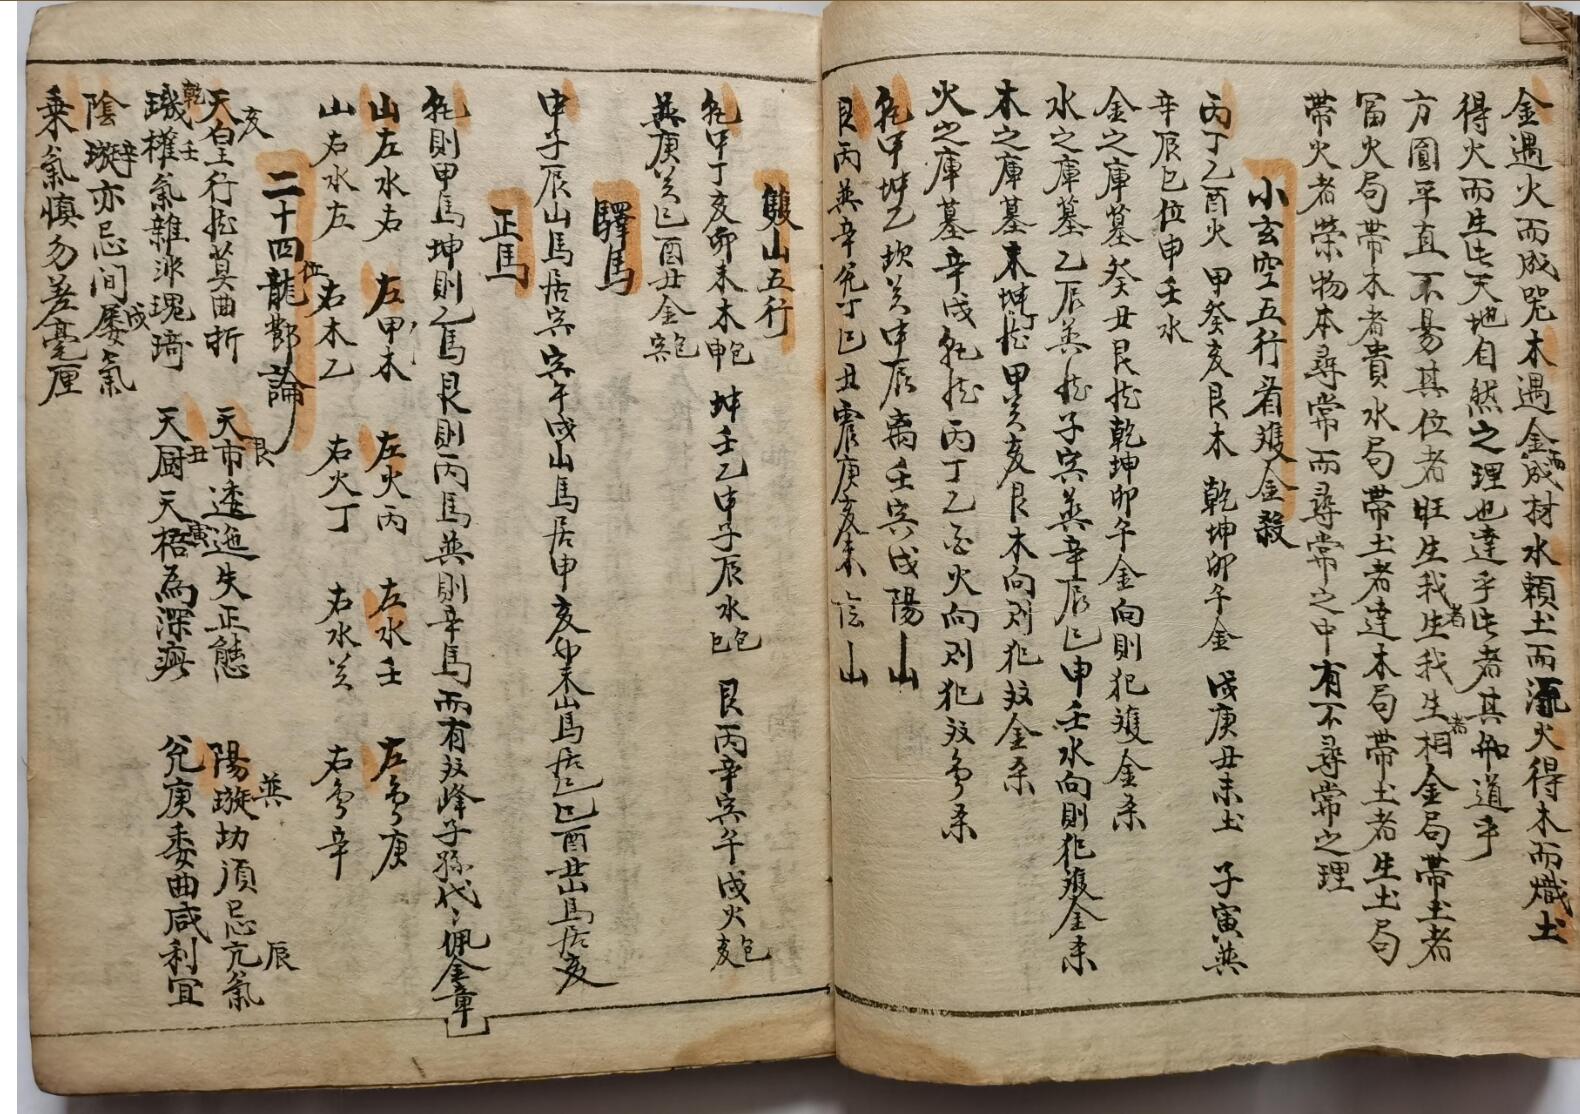 金遇火而成咒木遇金而成材水賴土而流火得木而熾土
得火而生此天地自然之理也達乎此者其知道乎
方圓平直不易其位者旺生我者生我生者相金局帶土者
富火局帶木者貴水局帶土者達木局帶土者生土局
帶火者榮物本尋常而尋常之中有不尋常之理
小玄空五行看雙金殺
丙丁乙酉火 甲癸亥艮木 乾坤卯午金 戌庚丑未土 子寅巽
辛辰巳位申壬水
金之庫墓癸丑艮 乾坤卯午金向則犯 金杀
水之庫墓乙辰巽 子寅巽辛辰巳申壬水向則犯 金杀
木之庫墓未坤 甲癸亥艮木向則犯 金杀
火之庫墓辛戌乾 丙丁乙酉火向則犯 杀
乾甲坤乙坎癸申辰离壬寅戌陽山
艮丙巽辛兌丁巳丑震庚亥未陰山
雙山五行
乾甲丁亥卯未木申包 坤壬乙申子辰水巳包 艮丙辛寅午戌火亥包
巽庚癸巳酉丑金寅包
驛馬
申子辰山馬居寅寅午戌山馬居申亥卯未山馬居巳巳酉丑山馬居亥
正馬
乾則甲馬坤則乙馬艮則丙馬巽則辛馬而有 峰子孫代〻佩金章
山左水右 左甲木 左火丙 左水壬 左 庚
山右水左 右木乙 右火丁 右水癸 右 辛
二十四龍位 論
天皇亥行 莫曲折 天市艮透迤失正態 陽璇巽切須忌亢辰氣
璣乾權壬氣雜非瑰琦 天厨丑天梧寅為深 兌庚委曲咸利宜
陰璇辛亦忌間屡戌氣
乘氣慎勿差毫厘